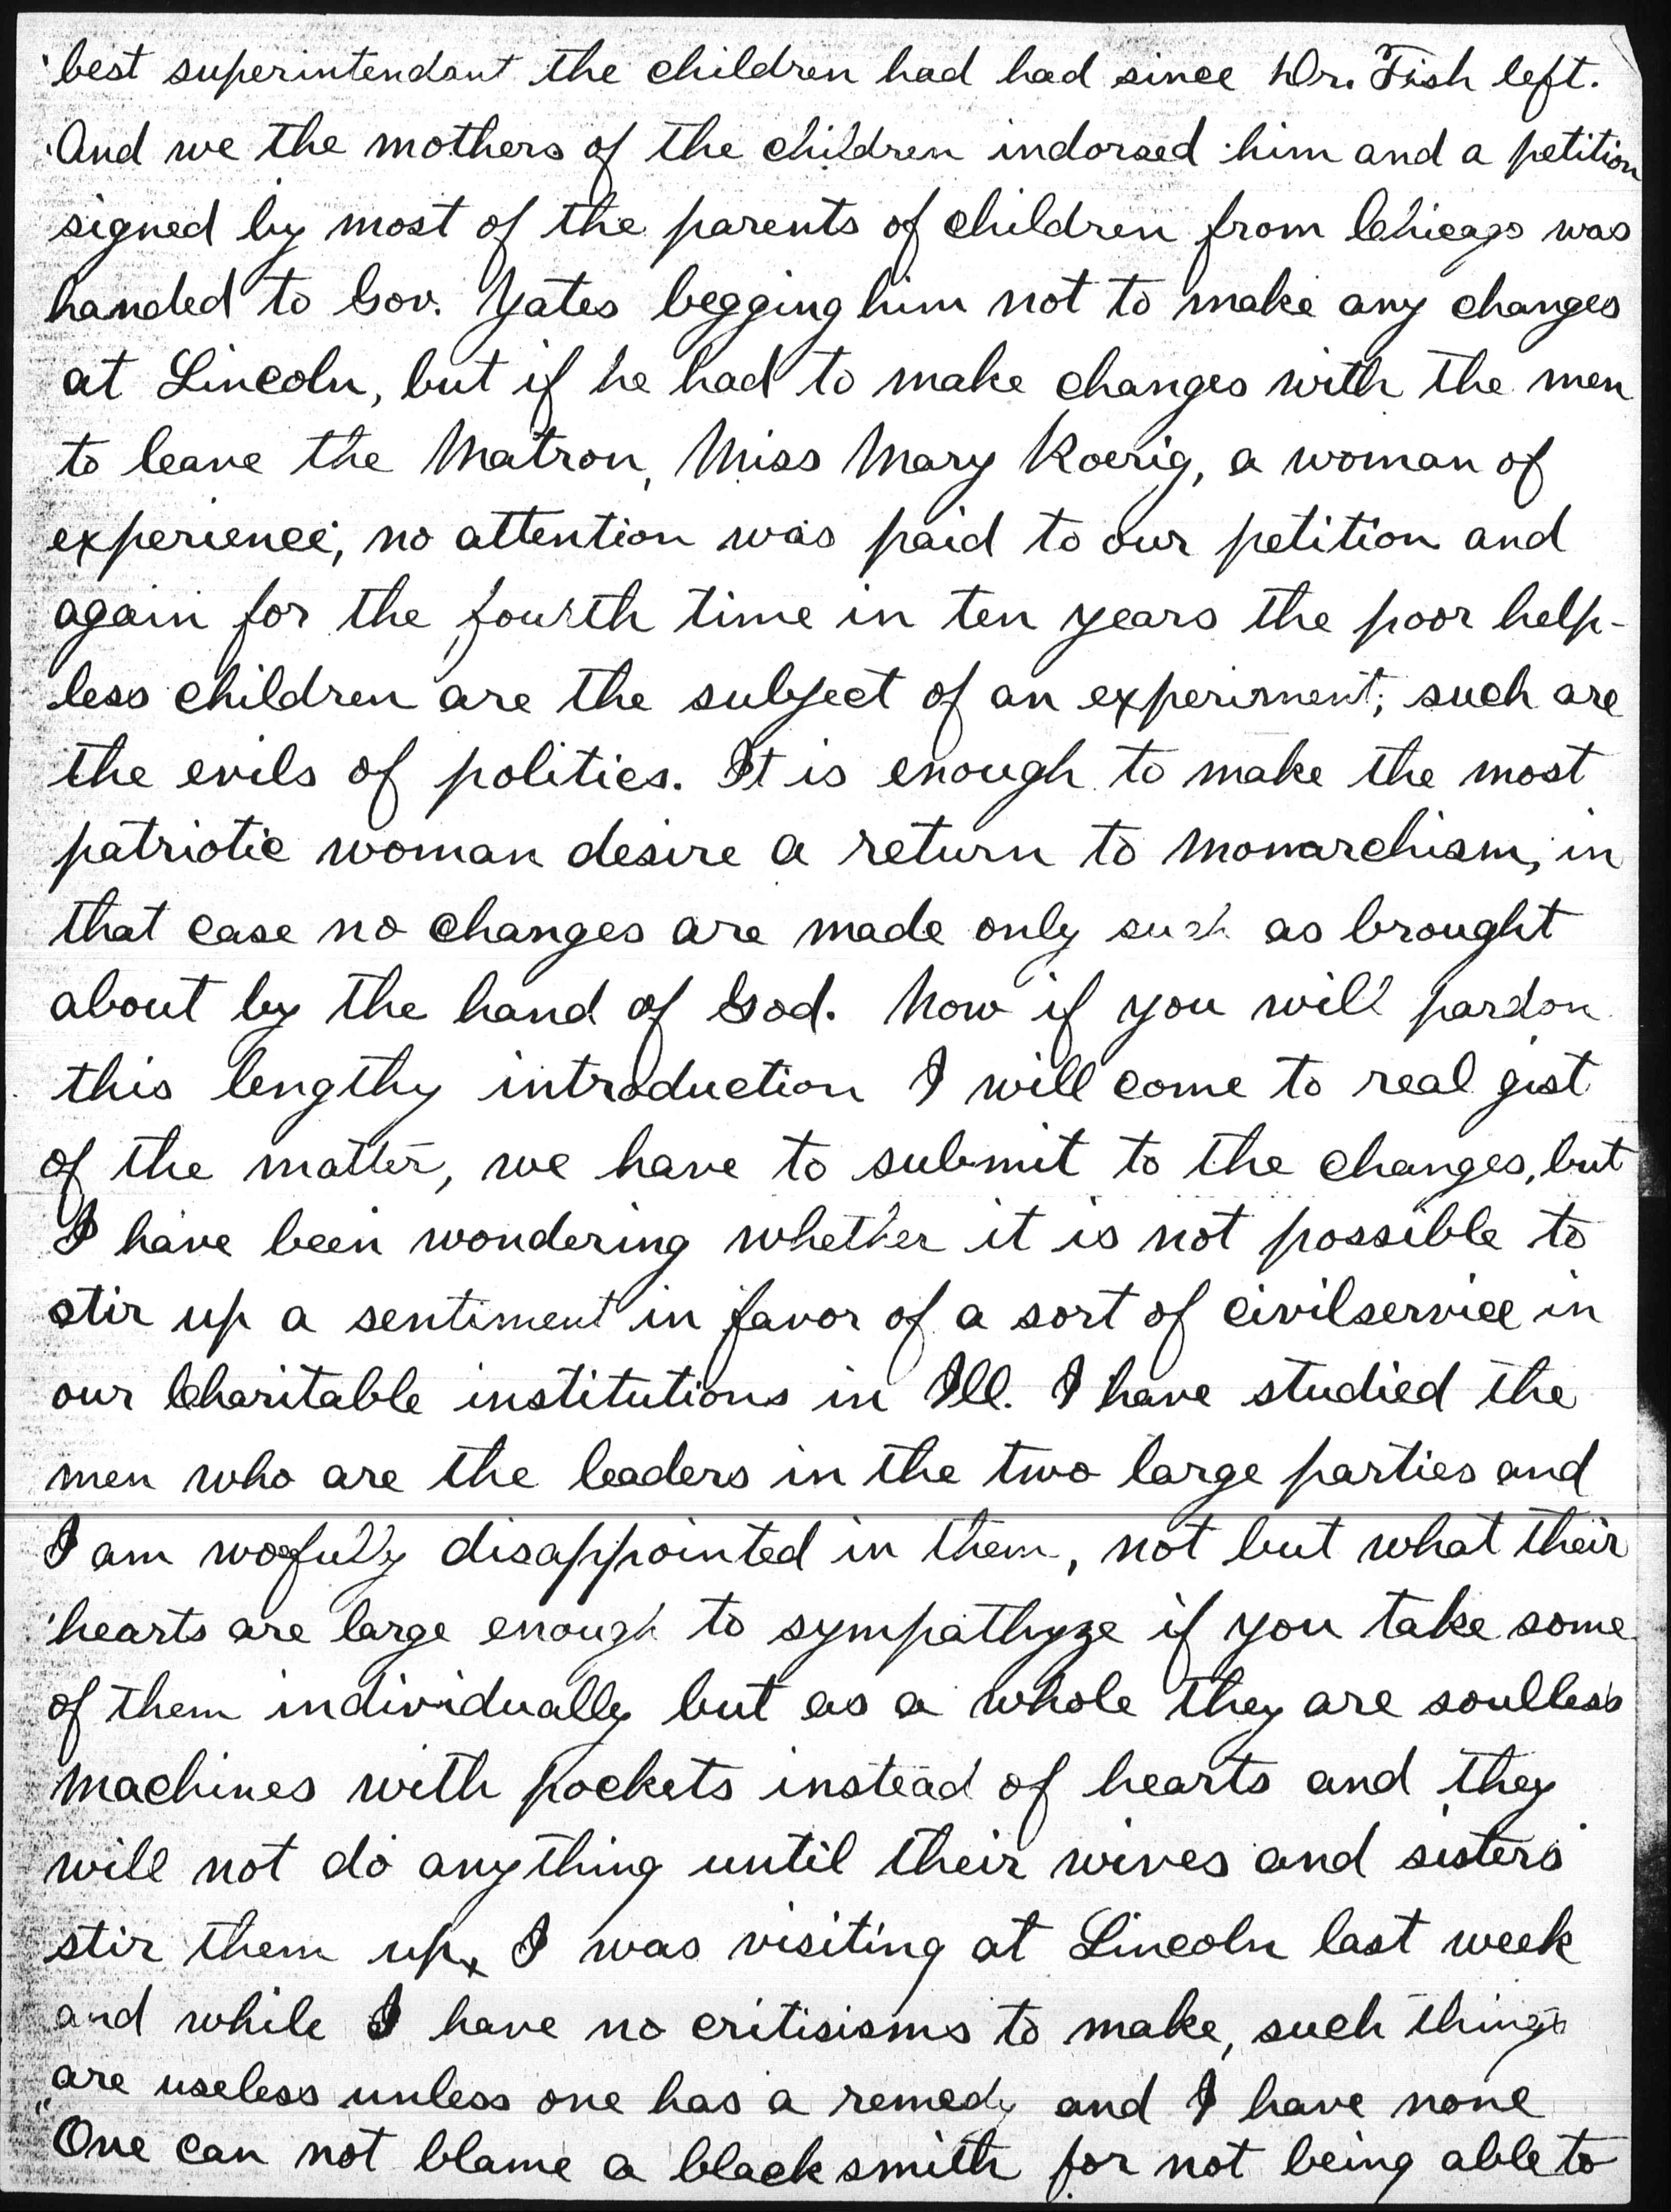 best superintendant the children had had since Dr. Fish left.
And we the mothers of the children indorsed him and a petition
signed by most of the parents of children from Chicago was
handed to Gov. Yates begging him not to make any changes
at Lincoln, but if he had to make changes with the men
to leave the Matron, Miss Mary Koerig, a woman of
experience, no attention was paid to our petition and
again for the fourth time in ten years the poor help-
less children are the subject of an experiment; such are
the evils of politics. It is enough to make the most
patriotic woman desire a return to monarchism, in
that case no changes are made only such as brought
about by the hand of God. Now if you will pardon
this lengthy introduction I will come to real gist
of the matter, we have to submit to the changes, but
I have been wondering whether it is not possible to
stir up a sentiment in favor of a sort of civilservice in
our Charitable institutions in Ill. I have studied the
men who are the leaders in the two large parties and
I am wofully disappointed in them, not but what their
hearts are large enough to sympathyze if you take some
of them individually but as a whole they are soulless
machines with pockets instead of hearts and they
will not do anything until their wives and sisters
stir them up. I was visiting at Lincoln last week
and while I have no critisisms to make, such things
are useless unless one has a remedy and I have none
"One can not blame a blacksmith for not being able to